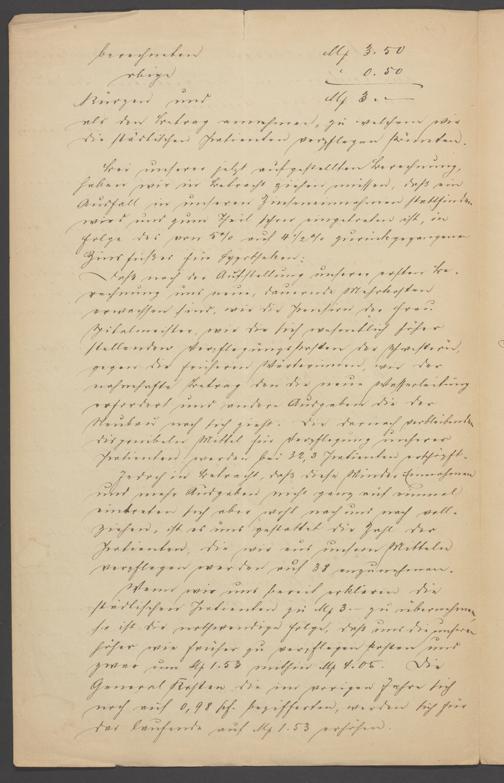 berechneten Mk 3.50
obige " 0.50
Kürzen und Mk 3.—
als den Betrag annehmen, zu welchem wir
die städtischen Patienten verpflegen könnten.
Bei unserer jetzt aufgestellten Berechnung,
haben wir in Betracht ziehen müssen, daß ein
Ausfall in unseren Zinseneinnahmen stattfinden
wird und zum Theil schon eingetreten ist, in
Folge des von 5% auf 4 1/2% zurückgegangenen
Zinsfußes für Hypotheken;
Daß nach der Aufstellung unserer ersten Be-
rechnung uns neue, dauernde Mehrkosten
erwachsen sind, wie die Pension der Frau
wie die sich wesentlich höher
stellenden Verpflegungskosten der Schwestern,
gegen die früheren Wärterinnen, wie der
namhafte Betrag den die neue Wasserleitung
erfordert und andere Ausgaben die der
Neubau nach sich zieht. Die darnach verbleibenden
disponibeln Mittel für Verpflegung unserer
Patienten werden bei 32,3 Patienten erschöpft.
Jedoch in Betracht, daß diese Minder Einnahmen
und mehr Ausgaben nicht ganz auf einmal
eintreten sich aber wohl nach und nach voll-
ziehen, ist es uns gestattet die Zahl der
Patienten, die wir aus unseren Mitteln
verpflegen werden auf 38 anzunehmen.
Wenn wir uns bereit erklären die
städtischen Patienten zu Mk 3.— zu übernehmen,
so ist die nothwendige Folge, daß uns die unseren
höher wie früher zu verpflegen kosten und
zwar um Mk 1.53 mithin Mk 4.05. Die
General Kosten die im vorigen Jahre sich
noch auf 0,98 bezifferten, werden sich für
das laufende auf Mk 1.53 erhöhen.